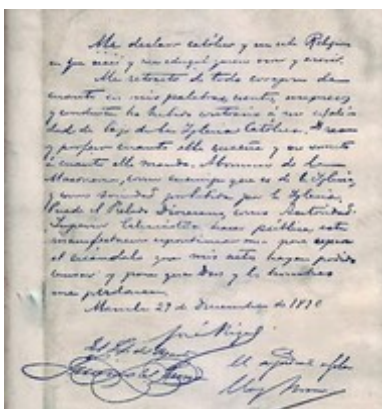 Me declaro católico y en esta Religion
en que nací y me eduqué quiero vivir y morir.
Me retracto de todo corazon de
cuanto en mis palabras, escritos, impresos
y conducta ha habido contrario á mi cualidad
de hijo de la Iglesia Católica. Creo
y profeso cuanto ella enseña y me someto
á cuanto ella manda. Abomino de la
Masonería, como enemiga que es de la Iglesia,
y como Sociedad prohibida por la Iglesia.
Puede el Prelado Diocesano, como Autoridad
Superior Eclesiástica hacer pública esta
manifestacion espontánea mia para reparar
el escándalo que mis actos hayan podido
causar y para que Dios y los hombres
me perdonen.
Manila 29 de Diciembre de 1890
José Rizal
El Jefe del Piquete
El Ayudante de Plaza